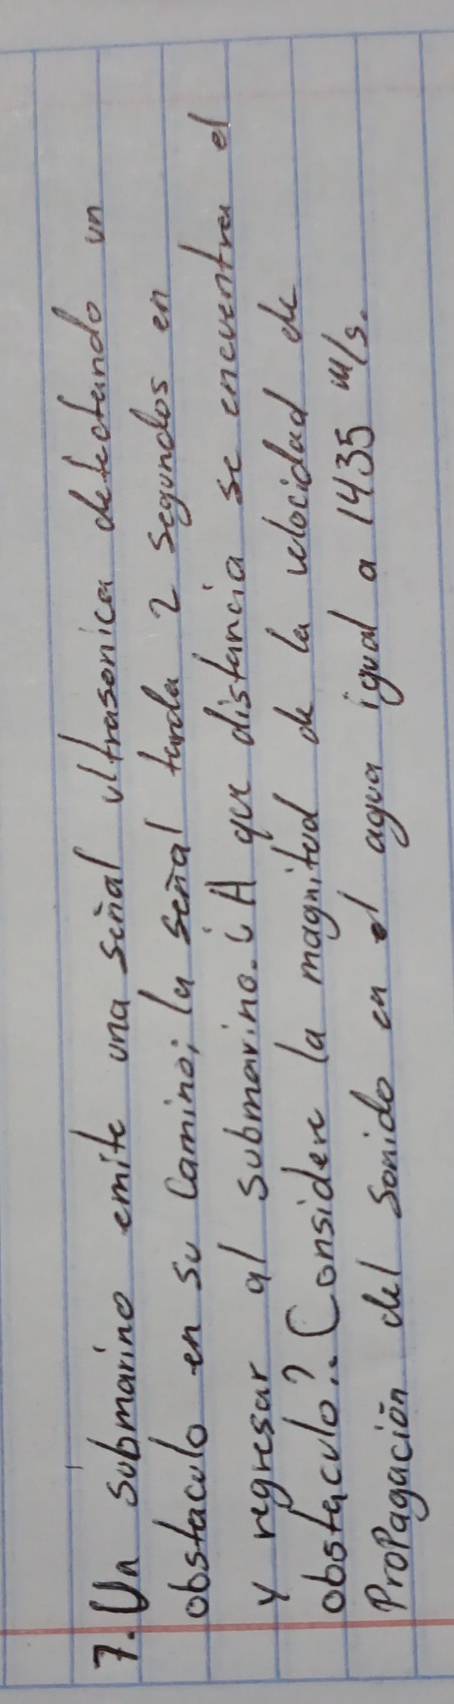 7. Un submarino emite una señal ultrasonica detectando un
obstaculo en su camino; la señal tarda 2 segundos en
y regresar al submarino. ¿A que distancia se encuentra el
obstaculo?. Considere la magnitud de la velocidad de
Propagación del sonido en el agua igual a 1435 m/s.